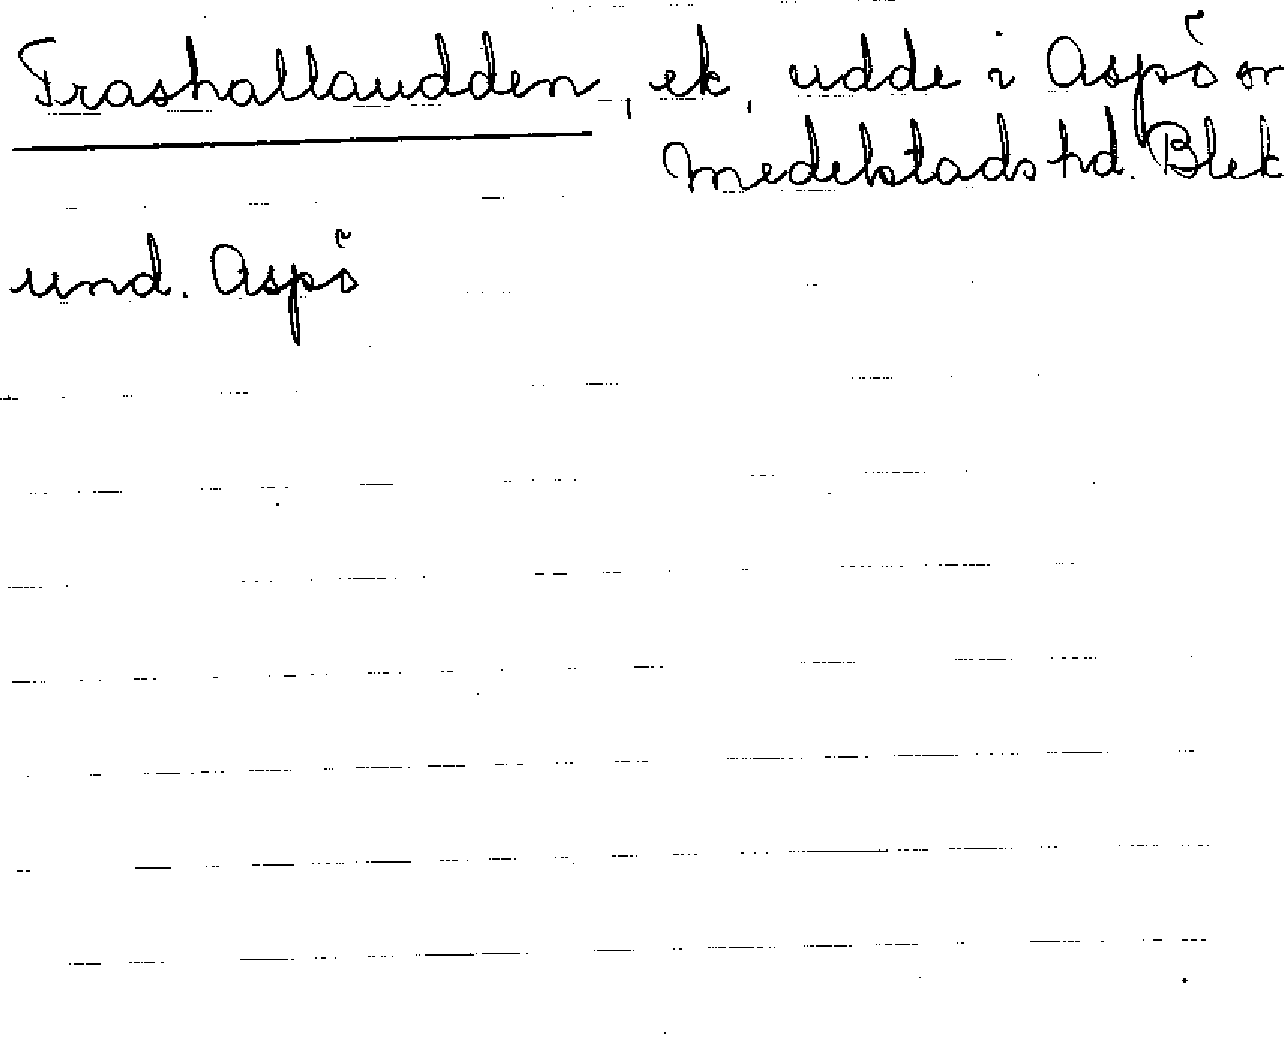 Trashallaudden, ek, udde i Aspö sn
Medelstads hd. Blek
und. Aspö